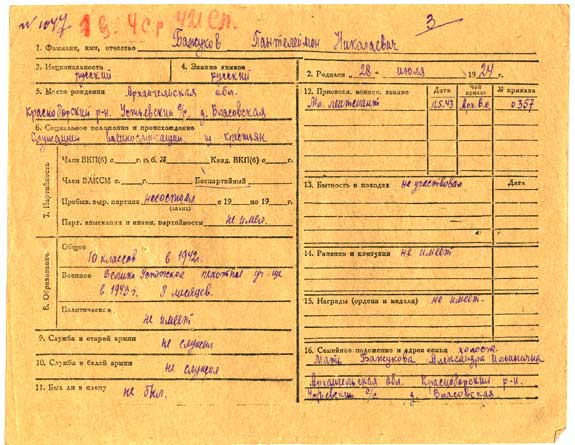 3
1. Фамилия, имя, отчество Бажуков Пантелеймон Николаевич
3. Национальность русский
4. Знание языков русский
2. Родился „28“ июля 1924 г.
5. Место рождения Архангельская обл.
Красноборский р-н. с/с. д. Власовская
6. Социальное положение и происхождение
Служащий военнослужащий из крестьян
7. Партийность
Член ВКП(б) с г. п. б. № Канд. ВКП(б) с г.
Член ВЛКСМ с г. Беспартийный
Пребыв. в др. партиях несостоял с 19 по 19 г.
(каких)
Парт. взыскания и измен. партийности не имел.
8. Образование
Общее
10 классов в 1942г.
Военное Велико Устюжское пехотное уч-ще
в 1943г. 8 месяцев.
Политическое
не имеет
9. Служба в старой армии не служил
10. Служба в белой армии не служил
11. Был ли в плену не был.
12. Присвоен. воинск. звание Дата Чей приказ № приказа
Мл. лейтенант Арх. В.О. 0357
13. Бытность в походах не участвовал Дата
14. Ранения и контузии не имеет
15. Награды (ордена и медали) не имеет.
16. Семейное положение и адрес семьи холост
Мать Бажукова Александра Ильинична
Архангельская обл. Красноборский р-н.
с/с д. Власовская